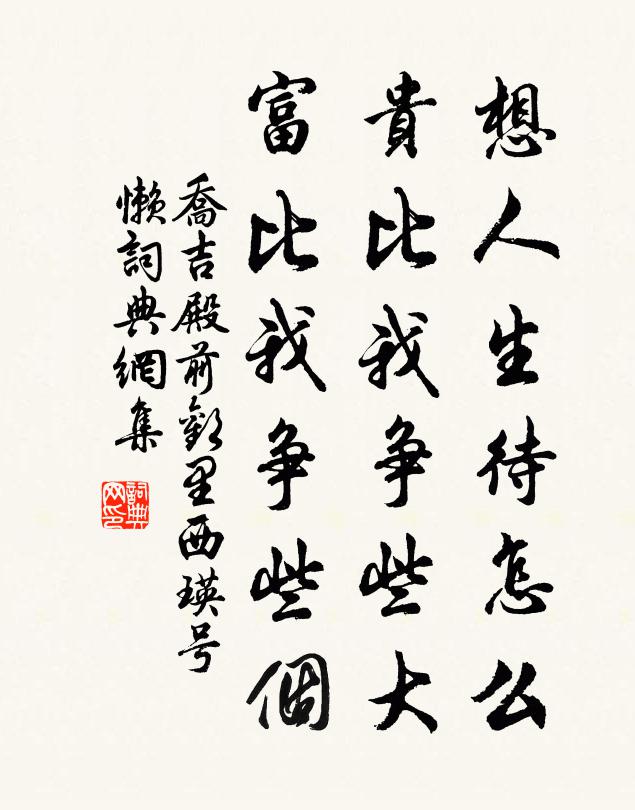 想人生待怎么
貴比我争些大
富比我争些個
喬吉殿前歡里西瑛号
懶詞典網集
詞典网印